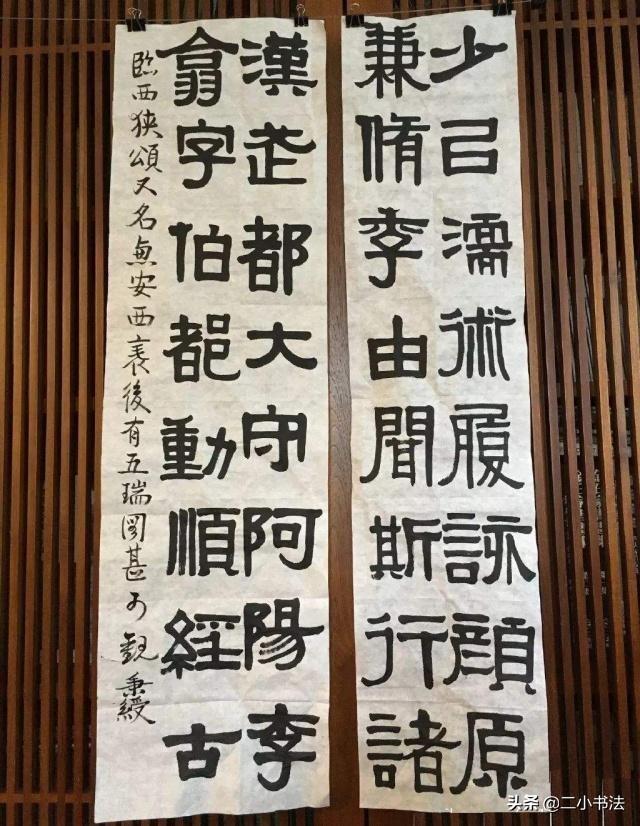 少㠯濡術履詠顔原
兼脩季由聞斯行諸
漢武都大守阿陽李
翕字伯都動順經古
臨西狹頌又名惠安西表後有五瑞圖甚可觀 秉綬
头条 @二小书法